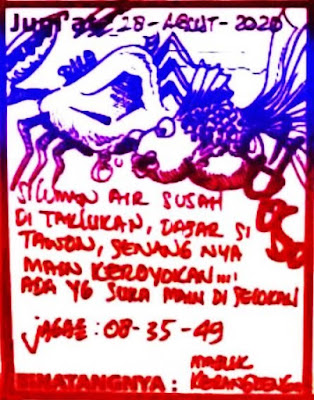 Jum'at 28 - AGUST - 2020
SILUMAN AIR SUSAH
DI TAKLUKAN, DASAR SI
TAWON, SENANG NYA
MAIN KEROYOKAN...!
ADA YG SUKA MAIN DI SELOKAN
JAGAE : 08-35-49
MABUK
BINATANGNYA :